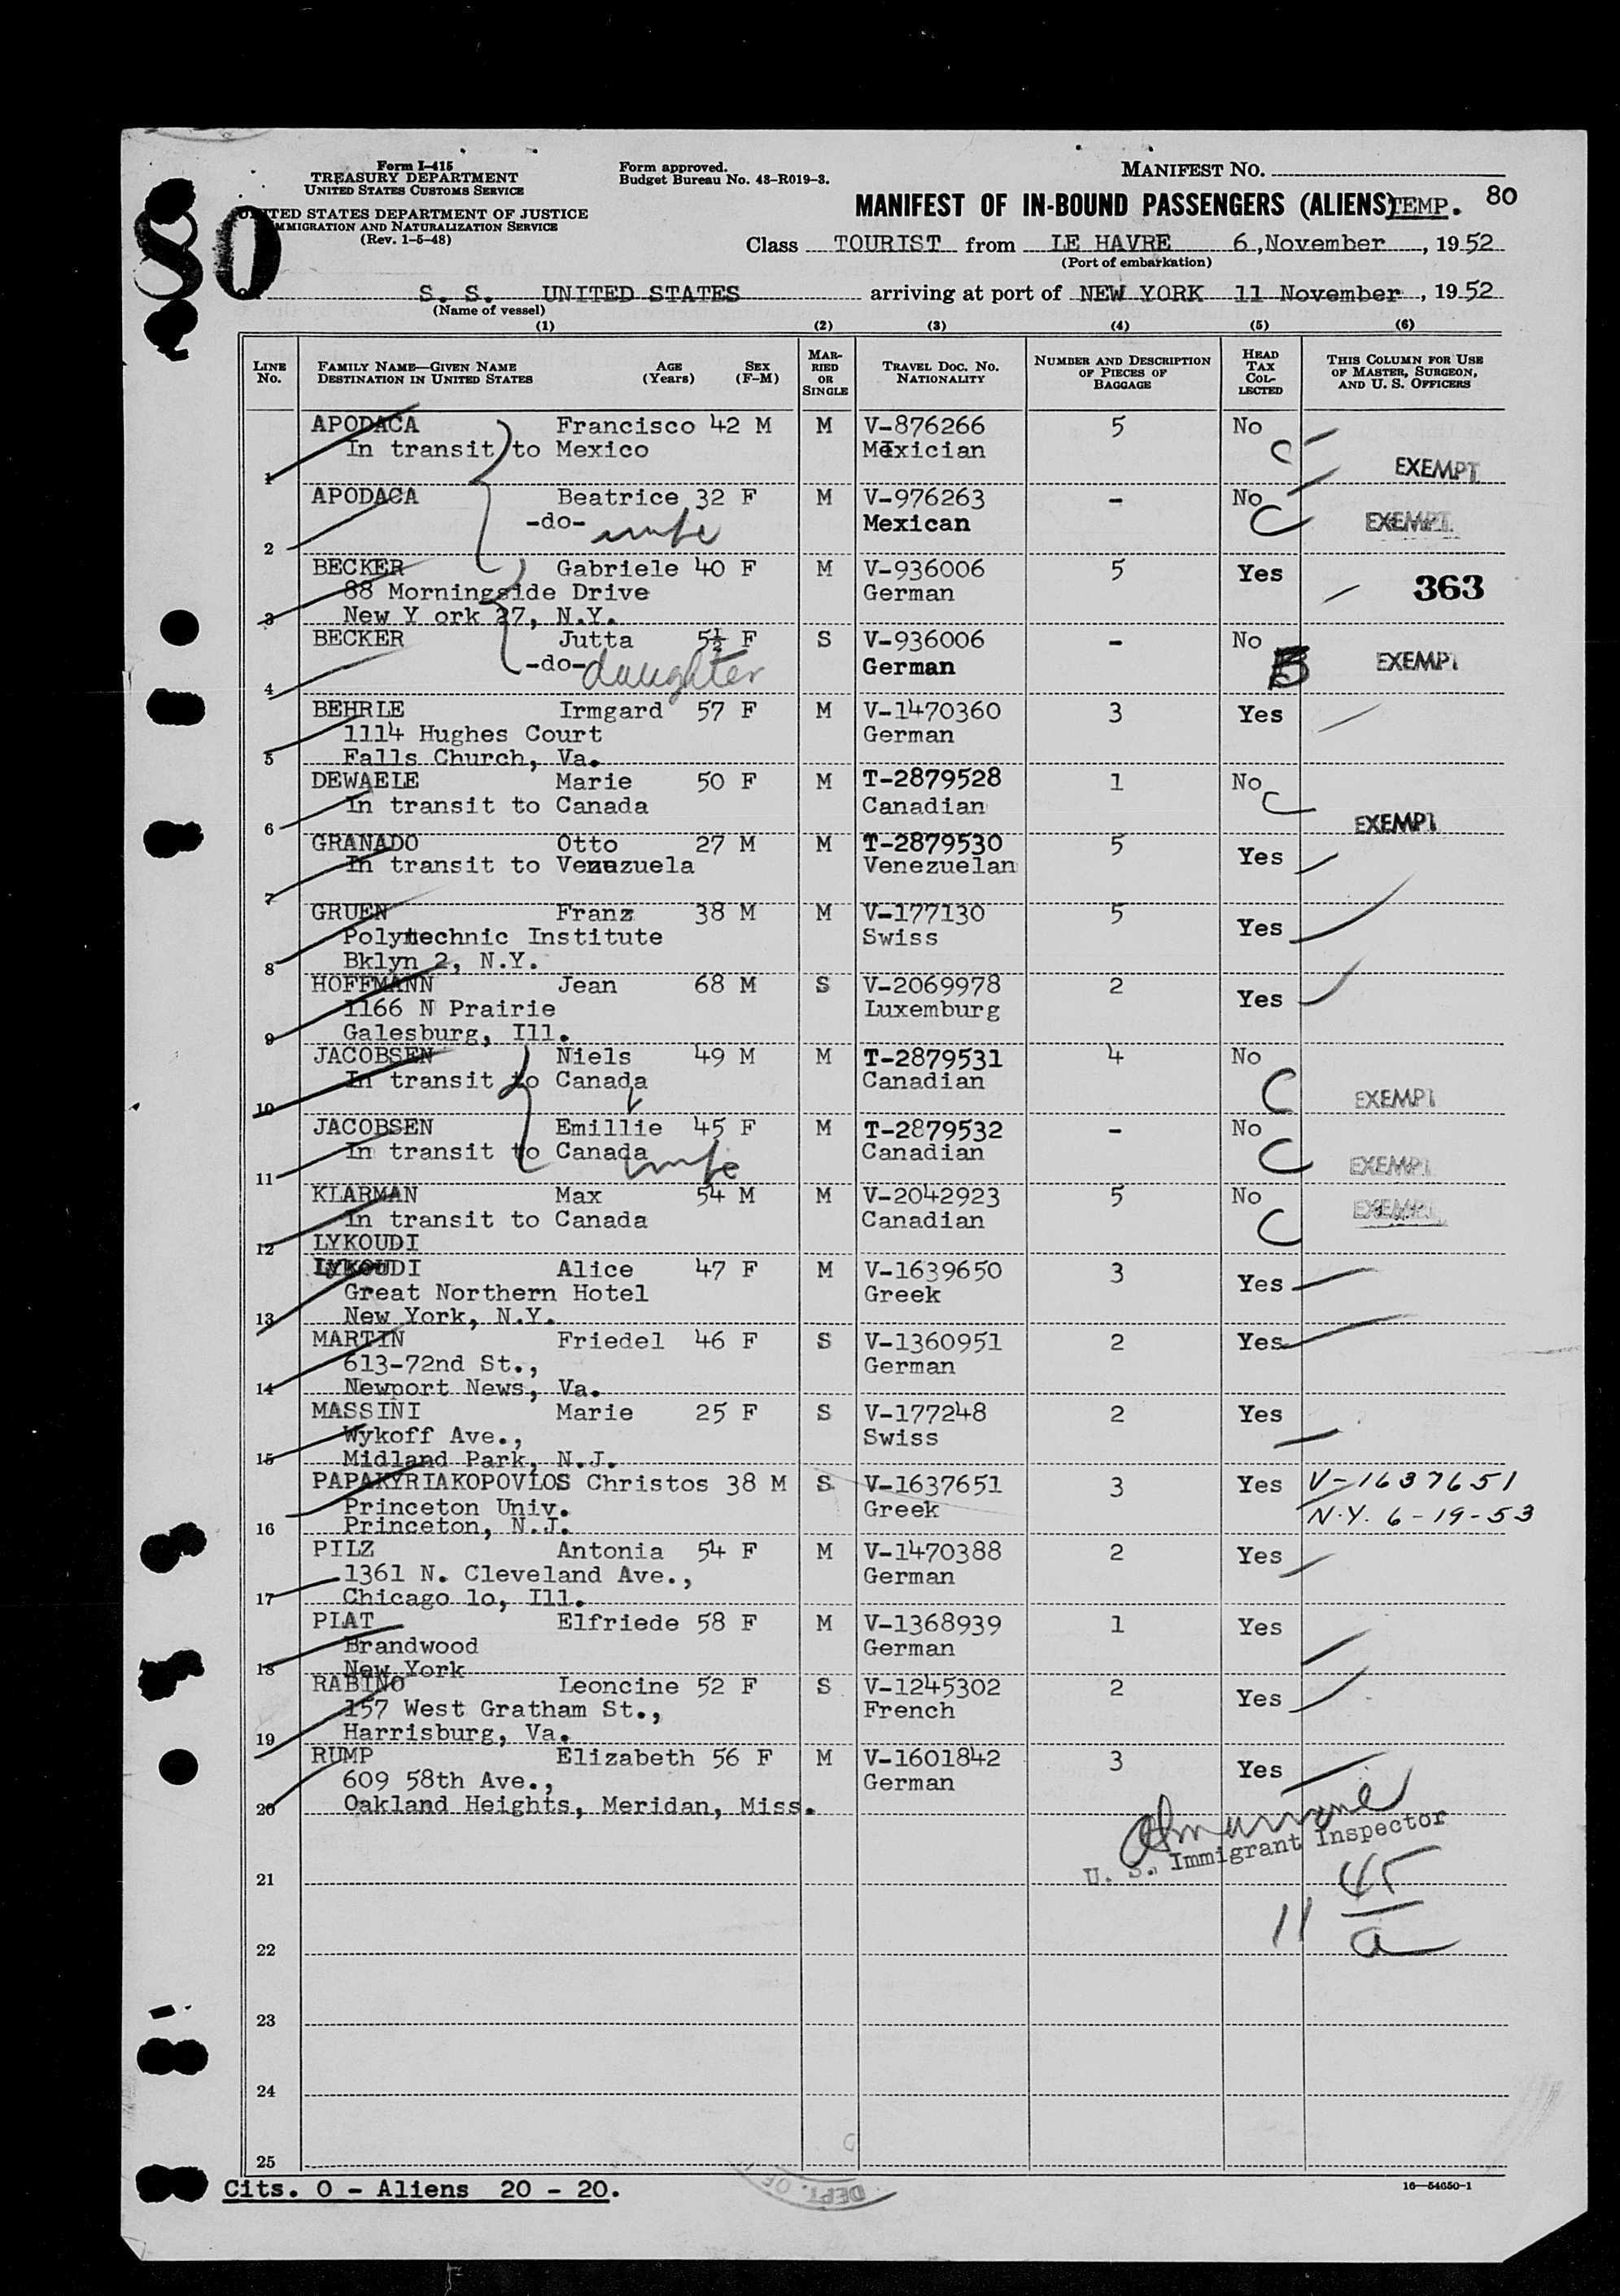 Form I-415
TREASURY DEPARTMENT
UNITED STATES CUSTOMS SERVICE
UNITED STATES DEPARTMENT OF JUSTICE
IMMIGRATION AND NATURALIZATION SERVICE
(Rev. 1-5-48)
Form approved.
Budget Bureau No. 43-R019-3.
MANIFEST NO.
80
MANIFEST OF IN-BOUND PASSENGERS (ALIENS) TEMP. 80
Class TOURIST from LE HAVRE 6, November, 1952
(Port of embarkation)
S. S. UNITED STATES arriving at port of NEW YORK 11 November, 1952
(Name of vessel)
(1) (2) (3) (4) (5) (6)
LINE No. FAMILY NAME—GIVEN NAME DESTINATION IN UNITED STATES AGE (Years) SEX (F-M) MARRIED OR SINGLE TRAVEL DOC. NO. NATIONALITY NUMBER AND DESCRIPTION OF PIECES OF BAGGAGE HEAD TAX COLLECTED THIS COLUMN FOR USE OF MASTER, SURGEON, AND U. S. OFFICERS
APODACA Francisco 42 M M V-876266 5 No
In transit to Mexico Mexician C
1 EXEMPT
APODACA Beatrice 32 F M V-976263 - No
-do- wife Mexican C EXEMPT
2
BECKER Gabriele 40 F M V-936006 5 Yes
88 Morningside Drive German 363
3 New Y ork 27, N.Y.
BECKER Jutta 5½ F S V-936006 - No
-do- daughter German B EXEMPT
4
BEHRLE Irmgard 57 F M V-1470360 3 Yes
1114 Hughes Court German
5 Falls Church, Va.
DEWAELE Marie 50 F M T-2879528 1 No
In transit to Canada Canadian C
6 EXEMPT
GRANADO Otto 27 M M T-2879530 5 Yes
In transit to Venezuela Venezuelan
7
GRUEN Franz 38 M M V-177130 5 Yes
Polytechnic Institute Swiss
8 Bklyn 2, N.Y.
HOFFMANN Jean 68 M S V-2069978 2 Yes
1166 N Prairie Luxemburg
9 Galesburg, Ill.
JACOBSEN Niels 49 M M T-2879531 4 No
In transit to Canada Canadian C EXEMPT
10
JACOBSEN Emillie 45 F M T-2879532 - No
In transit to Canada wife Canadian C EXEMPT
11
KLARMAN Max 54 M M V-2042923 5 No EXEMPT
In transit to Canada Canadian C
12 LYKOUDI
LYKOUDI Alice 47 F M V-1639650 3 Yes
Great Northern Hotel Greek
13 New York, N.Y.
MARTIN Friedel 46 F S V-1360951 2 Yes
613-72nd St., German
14 Newport News, Va.
MASSINI Marie 25 F S V-177248 2 Yes
Wykoff Ave., Swiss
15 Midland Park, N.J.
PAPAKYRIAKOPOVLOS Christos 38 M S V-1637651 3 Yes V-1637651
Princeton Univ. Greek N.Y. 6-19-53
16 Princeton, N.J.
PILZ Antonia 54 F M V-1470388 2 Yes
1361 N. Cleveland Ave., German
17 Chicago lo, Ill.
PIAT Elfriede 58 F M V-1368939 1 Yes
Brandwood German
18 New York
RABINO Leoncine 52 F S V-1245302 2 Yes
157 West Gratham St., French
19 Harrisburg, Va.
RUMP Elizabeth 56 F M V-1601842 3 Yes
609 58th Ave., German
20 Oakland Heights, Meridan, Miss.
U. S. Immigrant Inspector
21
45
11 a
22
23
24
25
Cits. 0 - Aliens 20 - 20.
DEPT. OF
16—54650-1